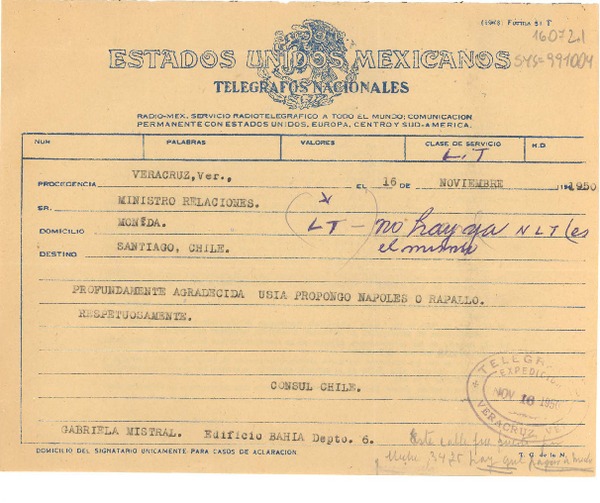 (1963) Forma 51 T
16072.1
SYS=991004
ESTADOS UNIDOS MEXICANOS
TELEGRAFOS NACIONALES
RADIO-MEX. SERVICIO RADIOTELEGRAFICO A TODO EL MUNDO; COMUNICACION
PERMANENTE CON ESTADOS UNIDOS, EUROPA, CENTRO Y SUD-AMERICA.
NUM PALABRAS VALORES CLASE DE SERVICIO H.D
L.T
PROCEDENCIA VERACRUZ,Ver., EL 16 DE NOVIEMBRE 1950
SR. MINISTRO RELACIONES.
DOMICILIO MONEDA. LT - no hay ya NLT (es
el mismo
DESTINO SANTIAGO, CHILE.
PROFUNDAMENTE AGRADECIDA USIA PROPONGO NAPOLES O RAPALLO.
RESPETUOSAMENTE.
CONSUL CHILE.
TELEGR
EXPEDICI
NOV 16 1950
VERACRUZ, VE
GABRIELA MISTRAL. Edificio BAHIA Depto. 6. Este calle
3425 hay que
DOMICILIO DEL SIGNATARIO UNICAMENTE PARA CASOS DE ACLARACION T. G. de la N.